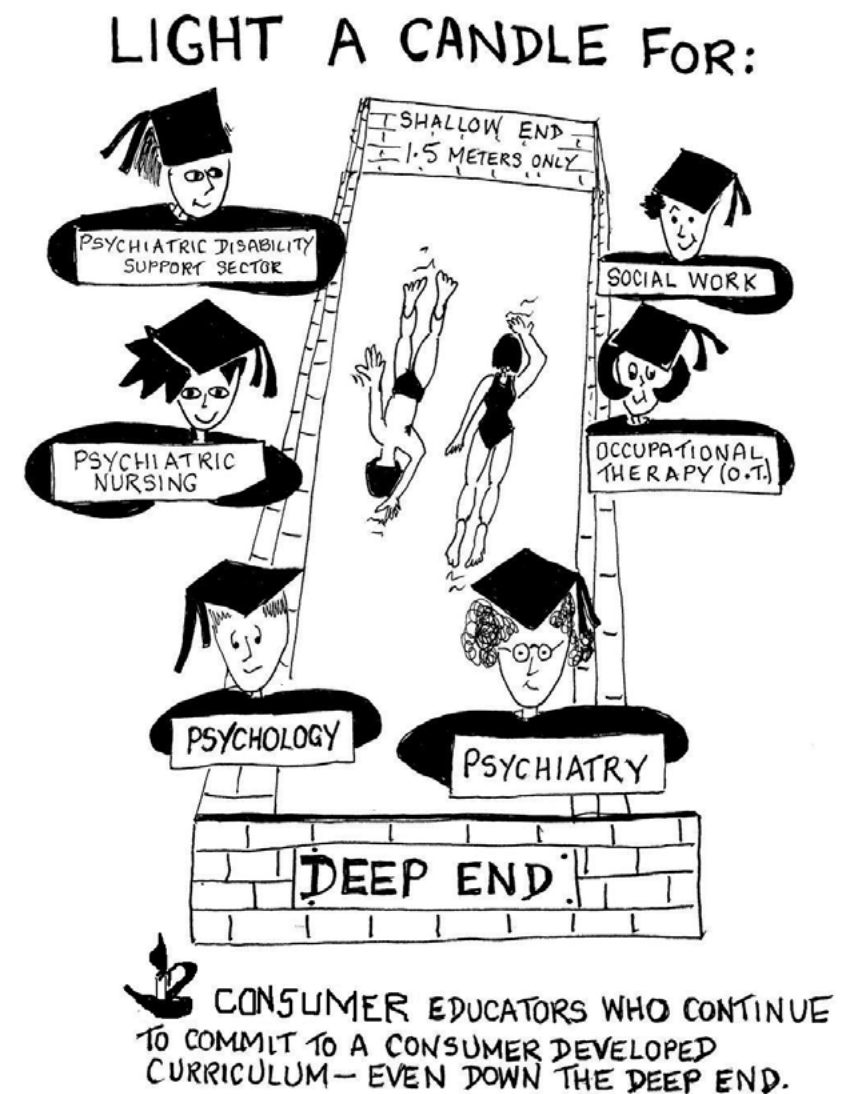 LIGHT A CANDLE FOR:
SHALLOW END
1.5 METERS ONLY
PSYCHIATRIC DISABILITY
SUPPORT SECTOR
SOCIAL WORK
PSYCHIATRIC
NURSING
OCCUPATIONAL
THERAPY (O.T.)
PSYCHOLOGY
PSYCHIATRY
DEEP END
CONSUMER EDUCATORS WHO CONTINUE
TO COMMIT TO A CONSUMER DEVELOPED
CURRICULUM – EVEN DOWN THE DEEP END.